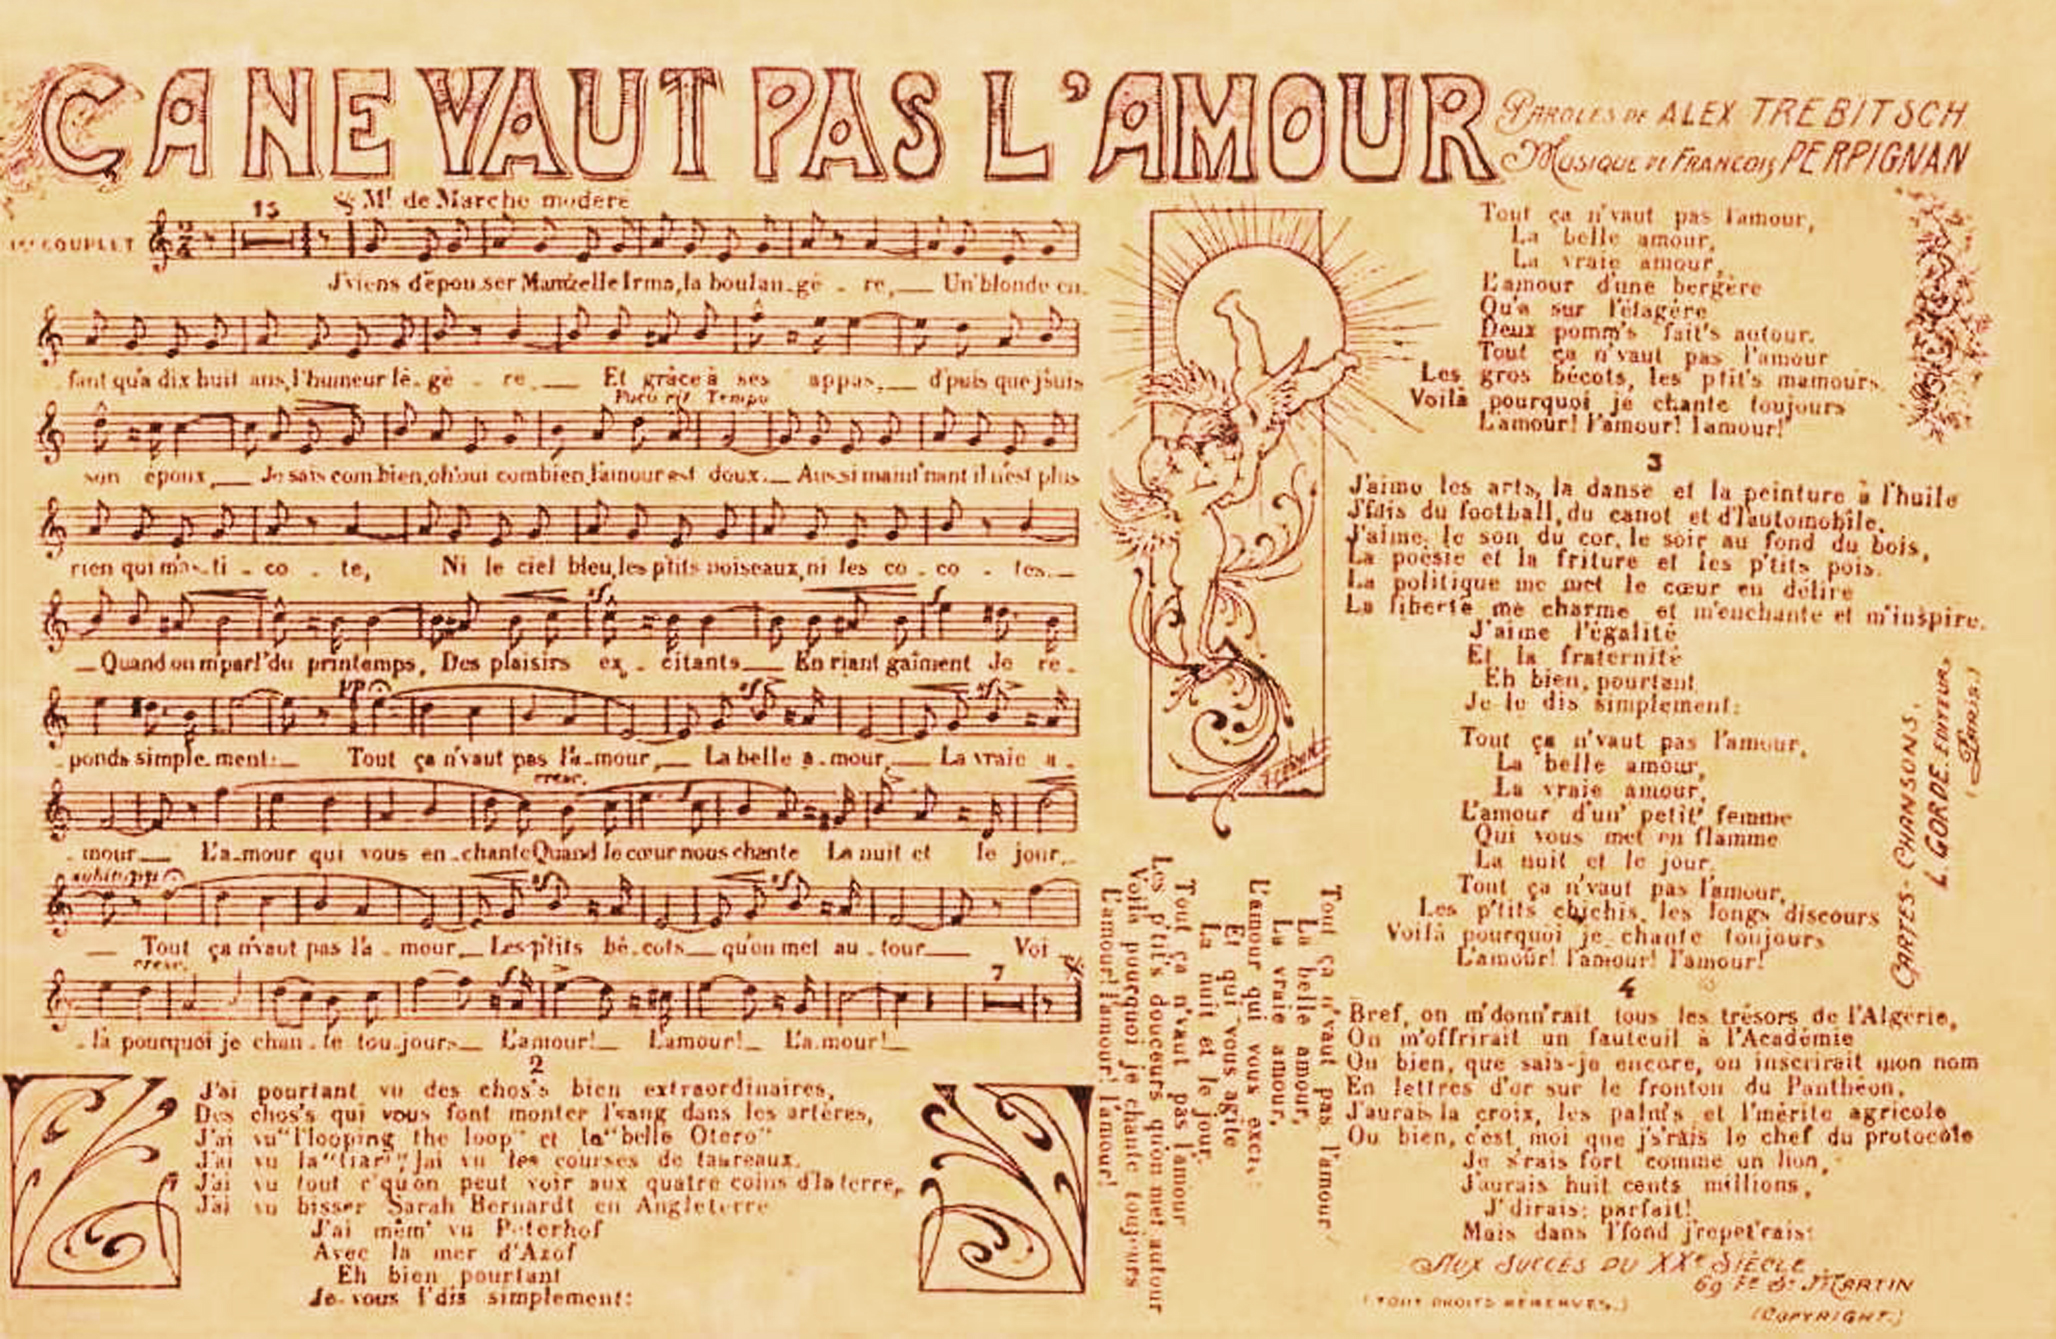 CA NE VAUT PAS L'AMOUR
PAROLES DE ALEX TREBITSCH
MUSIQUE DE FRANÇOIS PERPIGNAN
1er COUPLET
15
Mt de Marche modéré
J'viens d'épou.ser Mamzelle Irma, la boulan.gè . re,__ Un'blonde en.
fant qu'a dix huit ans, l'humeur lé.gè . re__ Et grâce à ses appas,__ d'puis que j'suis
Poco rit Tempo
son époux,__ Je sais com.bien, oh! oui combien, l'amour est doux.__ Aussi maint'nant il n'est plus
rien qui m'as.ti . co . te, Ni le ciel bleu, les p'tits noiseaux, ni les co . co . tes.__
sf f
__Quand on m'parl' du printemps, Des plaisirs ex . citants__ En riant gaîment Je ré .
pp sf sf
ponds simple.ment:__ Tout ça n'vaut pas l'a.mour,__ La belle a.mour,__ La vraie a .
cresc.
. mour__ L'a.mour qui vous en.chante Quand le cœur nous chante La nuit et le jour__
subito pp sf sf
__ Tout ça n'vaut pas l'a . mour,__ Les p'tits bé.cots__ qu'on met au . tour__ Voi .
cresc. sf 7
. là pourquoi je chan . te toujours__ L'amour!__ L'amour!__ L'a.mour!__
2
J'ai pourtant vu des chos's bien extraordinaires,
Des chos's qui vous font monter l'sang dans les artères,
J'ai vu "l'looping the loop" et la "belle Otero"
J'ai vu la "tiar'", J'ai vu les courses de taureaux.
J'ai vu tout c'qu'on peut voir aux quatre coins d'la terre,
J'ai vu bisser Sarah Bernardt en Angleterre
J'ai mêm' vu Peterhof
Avec la mer d'Azof
Eh bien pourtant
Je vous l'dis simplement:
Tout ça n'vaut pas l'amour
La belle amour,
La vraie amour,
L'amour qui vous excite
Et qui vous agite
La nuit et le jour.
Tout ça n'vaut pas l'amour
Les p'tit's douceurs qu'on met autour
Voilà pourquoi je chante toujours
L'amour! l'amour! l'amour!
Tout ça n'vaut pas l'amour,
La belle amour,
La vraie amour,
L'amour d'une bergère
Qu'a sur l'étagère
Deux pomm's fait's autour.
Tout ça n'vaut pas l'amour
Les gros bécots, les p'tit's mamours.
Voilà pourquoi je chante toujours
L'amour! l'amour! l'amour!
3
J'aime les arts, la danse et la peinture à l'huile
J'fais du football, du canot et d'l'automobile,
J'aime, le son du cor, le soir au fond du bois,
La poésie et la friture et les p'tits pois.
La politique me met le cœur en délire
La liberté me charme et m'enchante et m'inspire.
J'aime l'égalité
Et la fraternité
Eh bien, pourtant
Je le dis simplement:
Tout ça n'vaut pas l'amour,
La belle amour,
La vraie amour,
L'amour d'un' petit' femme
Qui vous met en flamme
La nuit et le jour.
Tout ça n'vaut pas l'amour,
Les p'tits chichis, les longs discours
Voilà pourquoi je chante toujours
L'amour! l'amour! l'amour!
4
Bref, on m'donn'rait tous les trésors de l'Algérie,
On m'offrirait un fauteuil à l'Académie
Ou bien, que sais-je encore, on inscrirait mon nom
En lettres d'or sur le fronton du Panthéon,
J'aurais la croix, les palm's et l'mérite agricole
Ou bien, c'est moi que j's'rais le chef du protocole
Je s'rais fort comme un lion,
J'aurais huit cents millions,
J'dirais: parfait!
Mais dans l'fond j'repèt'rais:
AUX SUCCÈS DU XXe SIÈCLE
69 Fg St MARTIN
(TOUT DROITS RÉSERVÉS.)
(COPYRIGHT.)
CARTES - CHANSONS.
L. GORDE. EDITEUR.
(PARIS.)